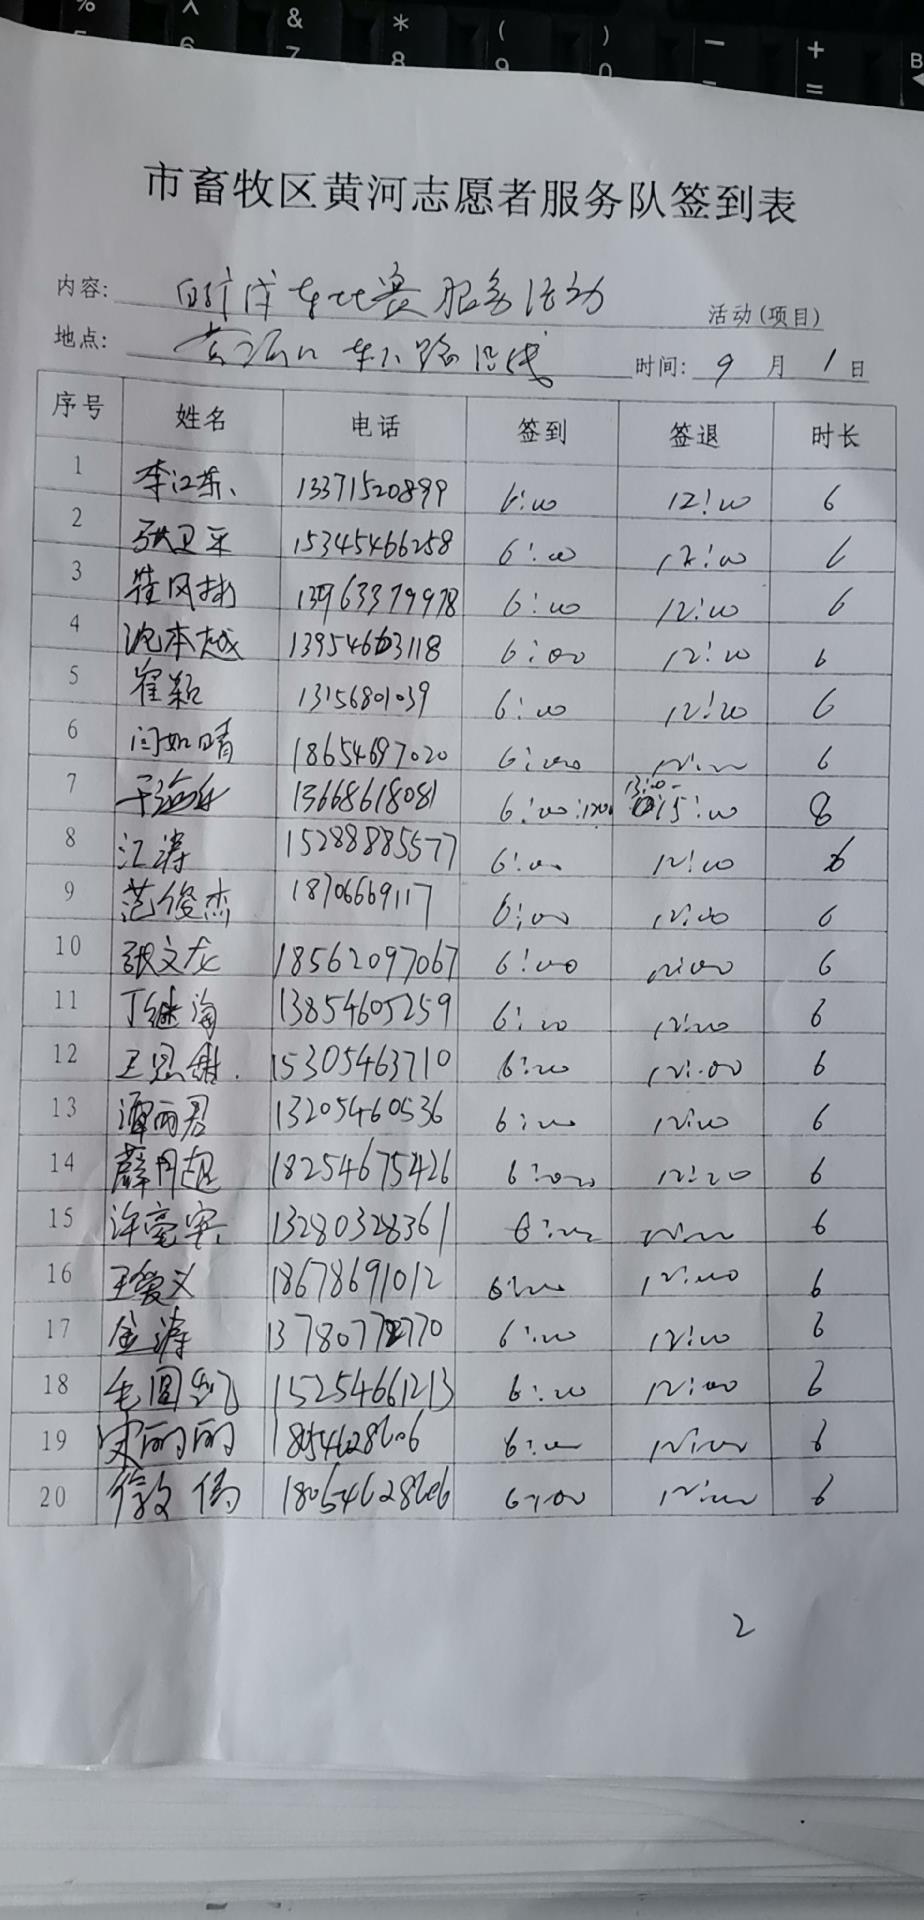 市畜牧区黄河志愿者服务队签到表
内容: 自行车比赛服务活动 活动(项目)
地点: 黄河口 路沿线 时间: 9 月 1 日
序号 姓名 电话 签到 签退 时长
1 李江东 13371520899 6:00 12:00 6
2 张卫平 15345466258 6:00 12:00 6
3 崔风林 13963379978 6:00 12:00 6
4 沈本越 13954663118 6:00 12:00 6
5 崔颖 13156801039 6:00 12:00 6
6 闫如晴 18654697020 6:00 12:00 6
7 于海 13668618081 6:00:1200 13:00-15:00 8
8 江涛 15288885577 6:00 12:00 6
9 范俊杰 18706669117 6:00 12:00 6
10 张文龙 18562097067 6:00 12:00 6
11 丁继海 13854605259 6:00 12:00 6
12 王恩 15305463710 6:00 12:00 6
13 谭丽君 13205460536 6:00 12:00 6
14 薛丹超 18254675426 6:00 12:00 6
15 许亮 13280328361 6:00 12:00 6
16 王爱义 18678691012 6:00 12:00 6
17 金涛 13780772770 6:00 12:00 6
18 毛圆 15254661213 6:00 12:00 6
19 宋丽丽 18054628606 6:00 12:00 6
20 徐文伟 18054628606 6:00 12:00 6
2